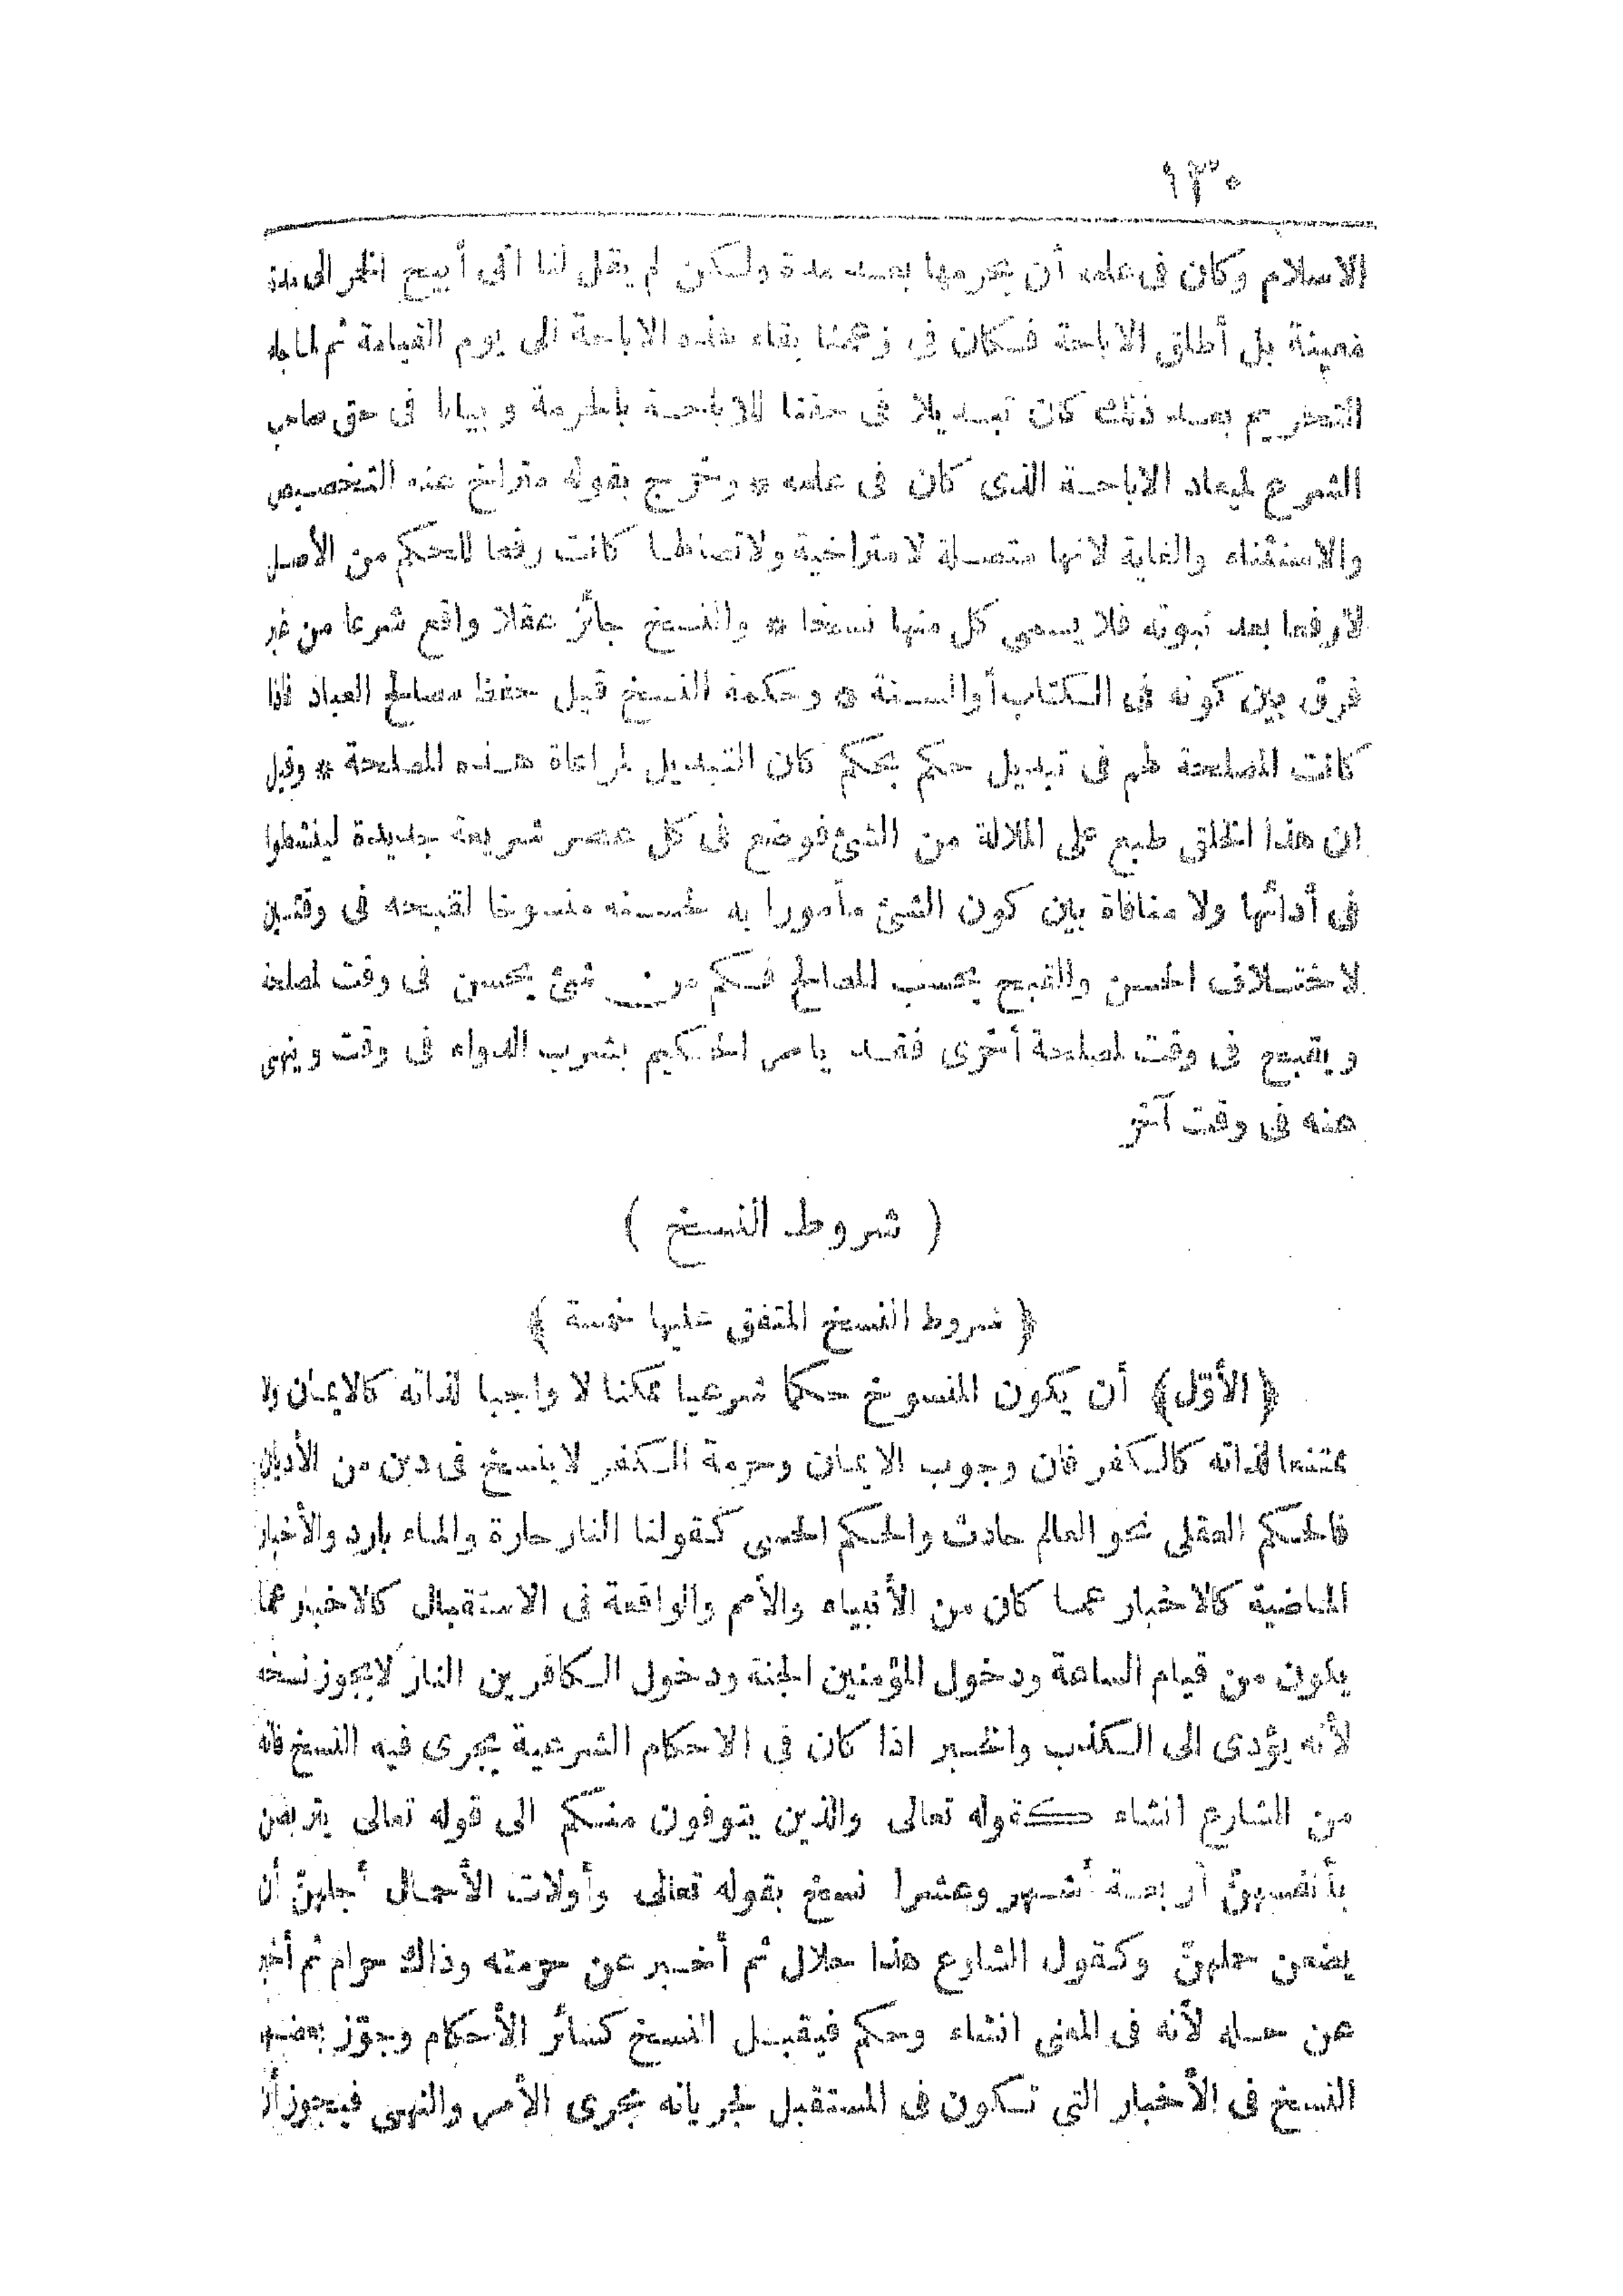 ١٣٠
الاسلام وكان فى علمه أن يحرمها بعد مدة ولكن لم يقل لنا انى أبيح الخر الى مدة
معينة بل أطلق الاباحة فكان فى زعمنا بقاء هذه الاباحة الى يوم القيامة ثم لما جاء
التحريم بعد ذلك كان تبديلا فى حقنا للاباحة بالحرمة وبيانا فى حق صاحب
الشرع لميعاد الاباحة الذى كان فى علمه * وخرج بقوله متراخ عنه التخصيص
والاستثناء والغاية لانها متصلة لا متراخية ولاتصالها كانت رفعا للحكم من الأصل
لا رفعا بعد ثبوته فلا يسمى كل منها نسخا * والنسخ جائز عقلا واقع شرعا من غير
فرق بين كونه فى الكتاب أو السنة * وحكمة النسخ قيل حفظ مصالح العباد فاذا
كانت المصلحة لهم فى تبديل حكم بحكم كان التبديل لمراعاة هذه المصلحة * وقيل
ان هذا الخلق طبع على الملالة من الشئ فوضع فى كل عصر شريعة جديدة لينشطوا
فى أدائها ولا منافاة بين كون الشئ مأمورا به لحسنه منسوخا لقبحه فى وقتين
لاختلاف الحسن والقبح بحسب المصالح فكم من شئ يحسن فى وقت لمصلحة
ويقبح فى وقت لمصلحة أخرى فقد يامر الحكيم بشرب الدواء فى وقت وينهى
عنه فى وقت آخر
( شروط النسخ )
﴿ شروط النسخ المتفق عليها خمسة ﴾
﴿الأوّل﴾ أن يكون المنسوخ حكما شرعيا ممكنا لا واجبا لذاته كالايمان ولا
ممتنعا لذاته كالكفر فان وجوب الايمان وحرمة الكفر لا ينسخ فى دين من الأديان
فالحكم العقلى نحو العالم حادث والحكم الحسى كقولنا النار حارة والماء بارد والأخبار
الماضية كالاخبار عما كان من الأنبياء والأمم والواقعة فى الاستقبال كالاخبار عما
يكون من قيام الساعة ودخول المؤمنين الجنة ودخول الكافرين النار لا يجوز نسخه
لأنه يؤدى الى الكذب والخبر اذا كان فى الاحكام الشرعية يجرى فيه النسخ فانه
من الشارع انشاء كقوله تعالى والذين يتوفون منكم الى قوله تعالى يتربصن
بأنفسهنّ أربعة أشهر وعشرا نسخ بقوله تعالى وأولات الأحمال أجلهنّ أن
يضعن حملهنّ وكقول الشارع هذا حلال ثم أخبر عن حرمته وذاك حرام ثم أخبر
عن حله لأنه فى المعنى انشاء وحكم فيقبل النسخ كسائر الأحكام وجوّز بعضهم
النسخ فى الأخبار التى تكون فى المستقبل لجريانه مجرى الأمر والنهى فيجوز أن